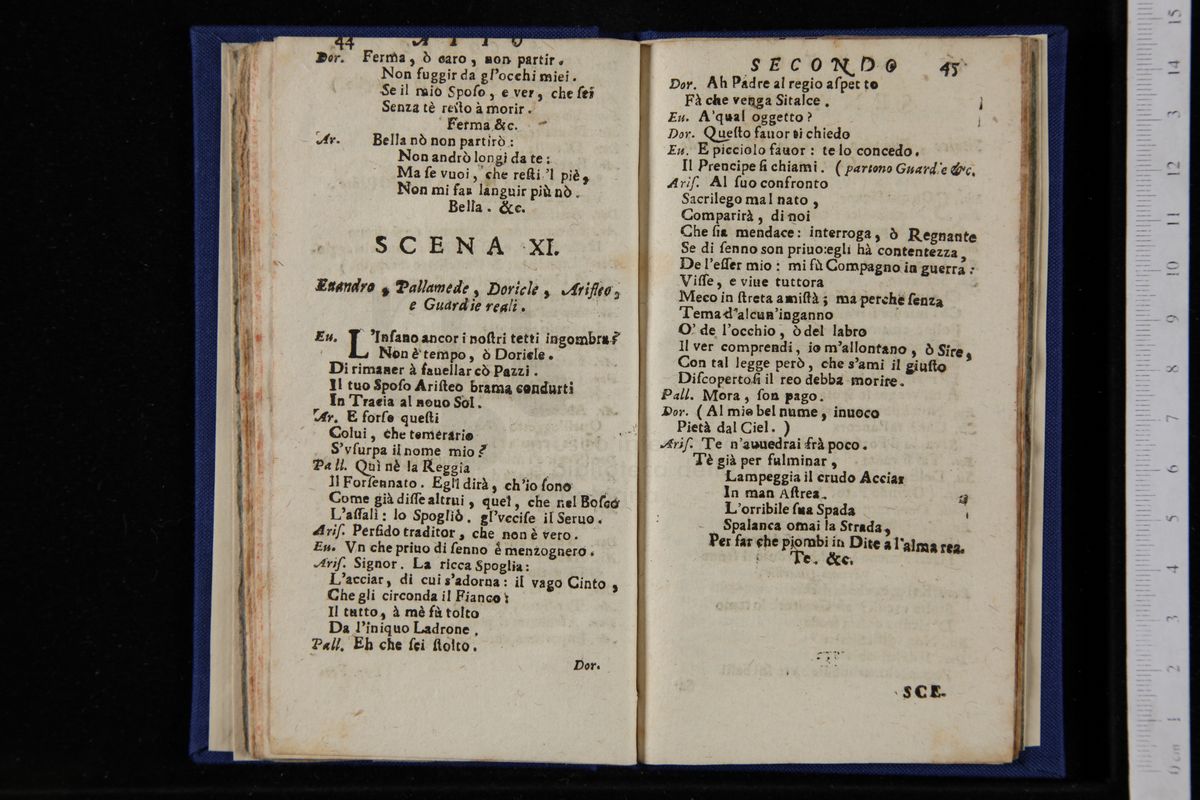 44 ATTO
Dor. Ferma, ò caro, non partir.
Non fuggir da gl'occhi miei.
Se il mio Spoſo, e ver, che ſei
Senza tè reſto à morir.
Ferma &c.
Ar. Bella nò non partirò:
Non andrò longi da te:
Ma ſe vuoi, che reſti 'l piè,
Non mi far languir più nò.
Bella. &c.
SCENA XI.
Euandro, Pallamede, Doricle, Ariſteo,
e Guardie reali.
Eu. L'Inſano ancor i noſtri tetti ingombra?
Non è tempo, ò Doricle.
Di rimaner à fauellar cò Pazzi.
Il tuo Spoſo Ariſteo brama condurti
In Tracia al nouo Sol.
Ar. E forſe queſti
Colui, che temerario
S'vſurpa il nome mio?
Pall. Quì nè la Reggia
Il Forſennato. Egli dirà, ch'io ſono
Come già diſſe altrui, quel, che nel Boſco
L'aſſalì: lo Spogliò. gl'vcciſe il Seruo.
Ariſ. Perfido traditor, che non è vero.
Eu. Vn che priuo di ſenno è menzognero.
Ariſ. Signor. La ricca Spoglia:
L'acciar, di cui s'adorna: il vago Cinto,
Che gli circonda il Fianco:
Il tutto, à mè fù tolto
Da l'iniquo Ladrone.
Pall. Eh che ſei ſtolto.
Dor.
SECONDO 45
Dor. Ah Padre al regio aſpetto
Fà che venga Sitalce.
Eu. A'qual oggetto?
Dor. Queſto fauor ti chiedo
Eu. E picciolo fauor: te lo concedo.
Il Prencipe ſi chiami. (partono Guardie &c.
Ariſ. Al ſuo confronto
Sacrilego mal nato,
Comparirà, di noi
Che ſia mendace: interroga, ò Regnante
Se di ſenno son priuo: egli hà contentezza,
De l'eſſer mio: mi fù Compagno in guerra:
Viſſe, e viue tuttora
Meco in ſtreta amiſtà; ma perche ſenza
Tema d'alcun'inganno
O' de l'occhio, ò del labro
Il ver comprendi, io m'allontano, ò Sire,
Con tal legge però, che s'ami il giuſto
Diſcopertoſi il reo debba morire.
Pall. Mora, ſon pago.
Dor. (Al mio bel nume, inuoco
Pietà dal Ciel. )
Ariſ. Te n'auuedrai frà poco.
Tè già per fulminar,
Lampeggia il crudo Acciar
In man Aſtrea.
L'orribile ſua Spada
Spalanca omai la Strada,
Per far che piombi in Dite a l'alma rea.
Te. &c.
SCE-